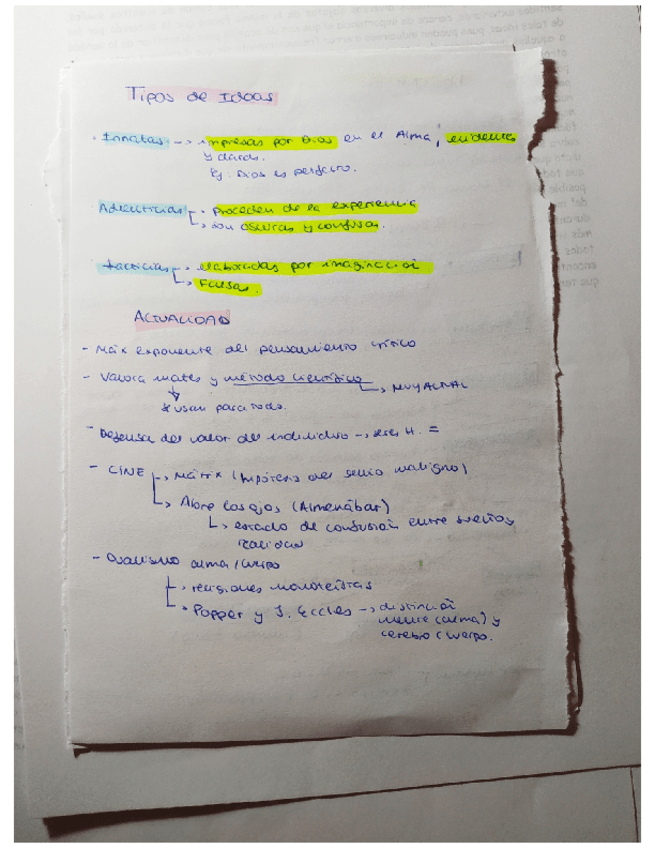 Tipos de Ideas
· Innatas -> impresas por Dios en el Alma, evidentes
y claras.
Ej: Dios es perfecto.
Adventicias -> proceden de la experiencia
-> son oscuras y confusas.
Facticias -> elaboradas por imaginación
-> Falsas.
ACTUALIDAD
- Máx exponente del pensamiento crítico
- Valora mates y método científico -> MUY ACTUAL
se usan para todo.
- Defensa del valor del individuo -> seres H. =
- CINE -> Mátrix (hipótesis del genio maligno)
-> Abre los ojos (Almenábar)
-> estado de confusión entre sueño y
realidad
- Dualismo alma/cuerpo
-> religiones monoteístas
-> Popper y J. Eccles -> distinción
mente (alma) y
cerebro (cuerpo.